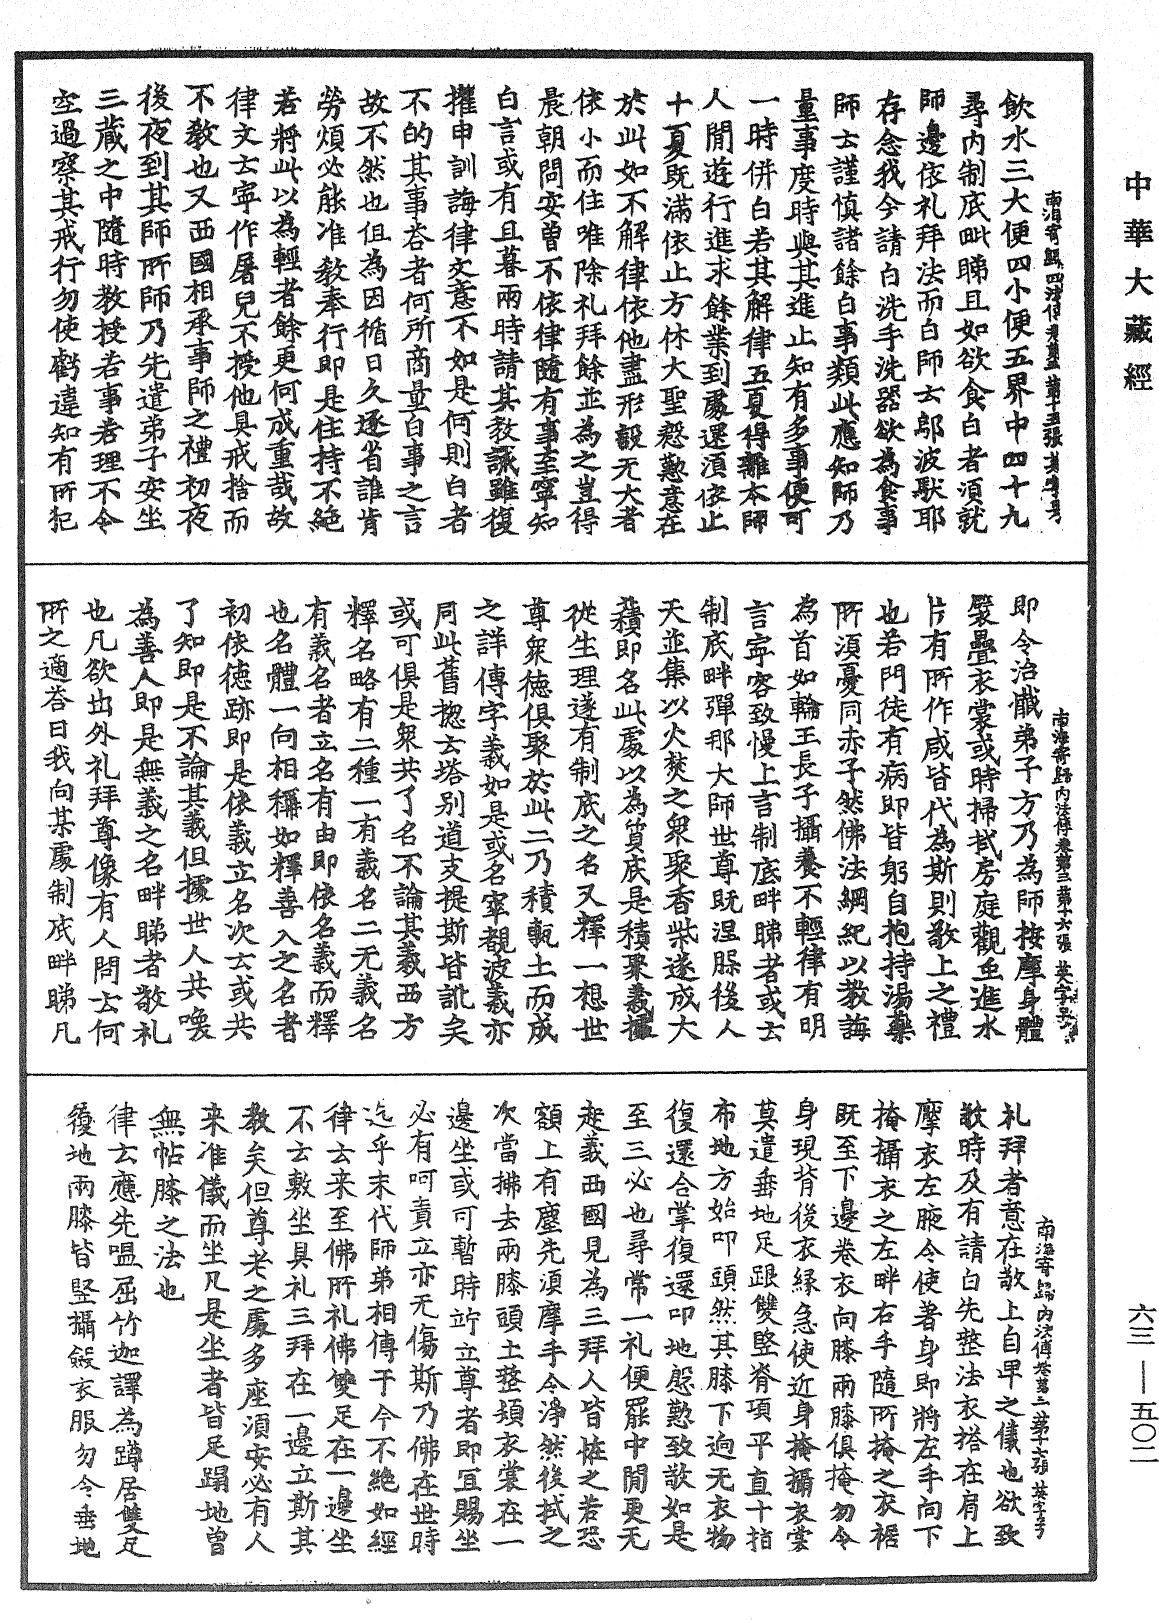 中華大藏經
飲水三大便四小便五界中四十九
尋内制底畔睇且如欲食白者須就
師邊依礼拜法而白師云鄔波馱耶
存念我今請白洗手洗器欲為食事
師云謹慎諸餘白事類此應知師乃
量事度時與其進止知有多事便可
一時併白若其解律五夏得離本師
人閒遊行進求餘業到處還須依止
十夏既滿依止方休大聖慇懃意在
於此如不解律依他盡形設无大者
依小而住唯除礼拜餘並為之豈得
晨朝問安曾不依律隨有事至寧知
白言或有且暮兩時請其教誡雖復
擢申訓誨律文意不如是何則白者
不的其事荅者何所商量白事之言
故不然也但為因循日久逐省誰肯
勞煩必能准教奉行即是住持不絕
若將此以為輕者餘更何成重哉故
律文云寧作屠兒不授他具戒捨而
不教也又西國相承事師之禮初夜
後夜到其師所師乃先遣弟子安坐
三藏之中隨時教授若事若理不令
空過察其戒行勿使虧違知有所犯
南海寄歸内法傳卷第三 第十六張 英字号
即令治懺弟子方乃為師按摩身體
襞疊衣裳或時掃拭房庭觀虫進水
片有所作咸皆代為斯則敬上之禮
也若門徒有病即皆躬自抱持湯藥
所須憂同赤子然佛法綱紀以教誨
為首如輪王長子攝養不輕律有明
言寧容致慢上言制底畔睇者或云
制底畔彈那大師世尊既涅槃後人
天並集以火焚之衆聚香柴遂成大
𧂐即名此處以為質底是積聚義據
從生理遂有制底之名又釋一想世
尊衆德俱聚於此二乃積甎土而成
之詳傳字義如是或名窣覩波義亦
同此舊揔云塔別道支提斯皆訛矣
或可俱是衆共了名不論其義西方
釋名略有二種一有義名二无義名
有義名者立名有由即依名義而釋
也名體一向相稱如釋善入之名者
初依德跡即是依義立名次云或共
了知即是不論其義但據世人共喚
為善人即是無義之名畔睇者敬礼
也凡欲出外礼拜尊像有人問云何
所之適荅曰我向某處制底畔睇凡
礼拜者意在敬上自卑之儀也欲致
敬時及有請白先整法衣搭在肩上
摩衣左腋令使著身即將左手向下
掩攝衣之左畔右手隨所掩之衣裾
既至下邊卷衣向膝兩膝俱掩勿令
身現背後衣緣急使近身掩攝衣裳
莫遣垂地足跟雙竪脊項平直十指
布地方始叩頭然其膝下迥无衣物
復還合掌復還叩地慇懃致敬如是
至三必也尋常一礼便罷中閒更无
起義西國見為三拜人皆怪之若恐
額上有塵先須摩手令淨然後拭之
次當拂去兩膝頭土整頓衣裳在一
邊坐或可暫時竚立尊者即宜賜坐
必有呵責立亦无傷斯乃佛在世時
迄乎末代師弟相傳于今不絕如經
律云来至佛所礼佛雙足在一邊坐
不云敷坐具礼三拜在一邊立斯其
教矣但尊老之處多座須安必有人
来准儀而坐凡是坐者皆足蹋地曾
無帖膝之法也
律云應先嗢屈竹迦譯為蹲居雙足
履地兩膝皆竪攝斂衣服勿令垂地
六三—五〇二